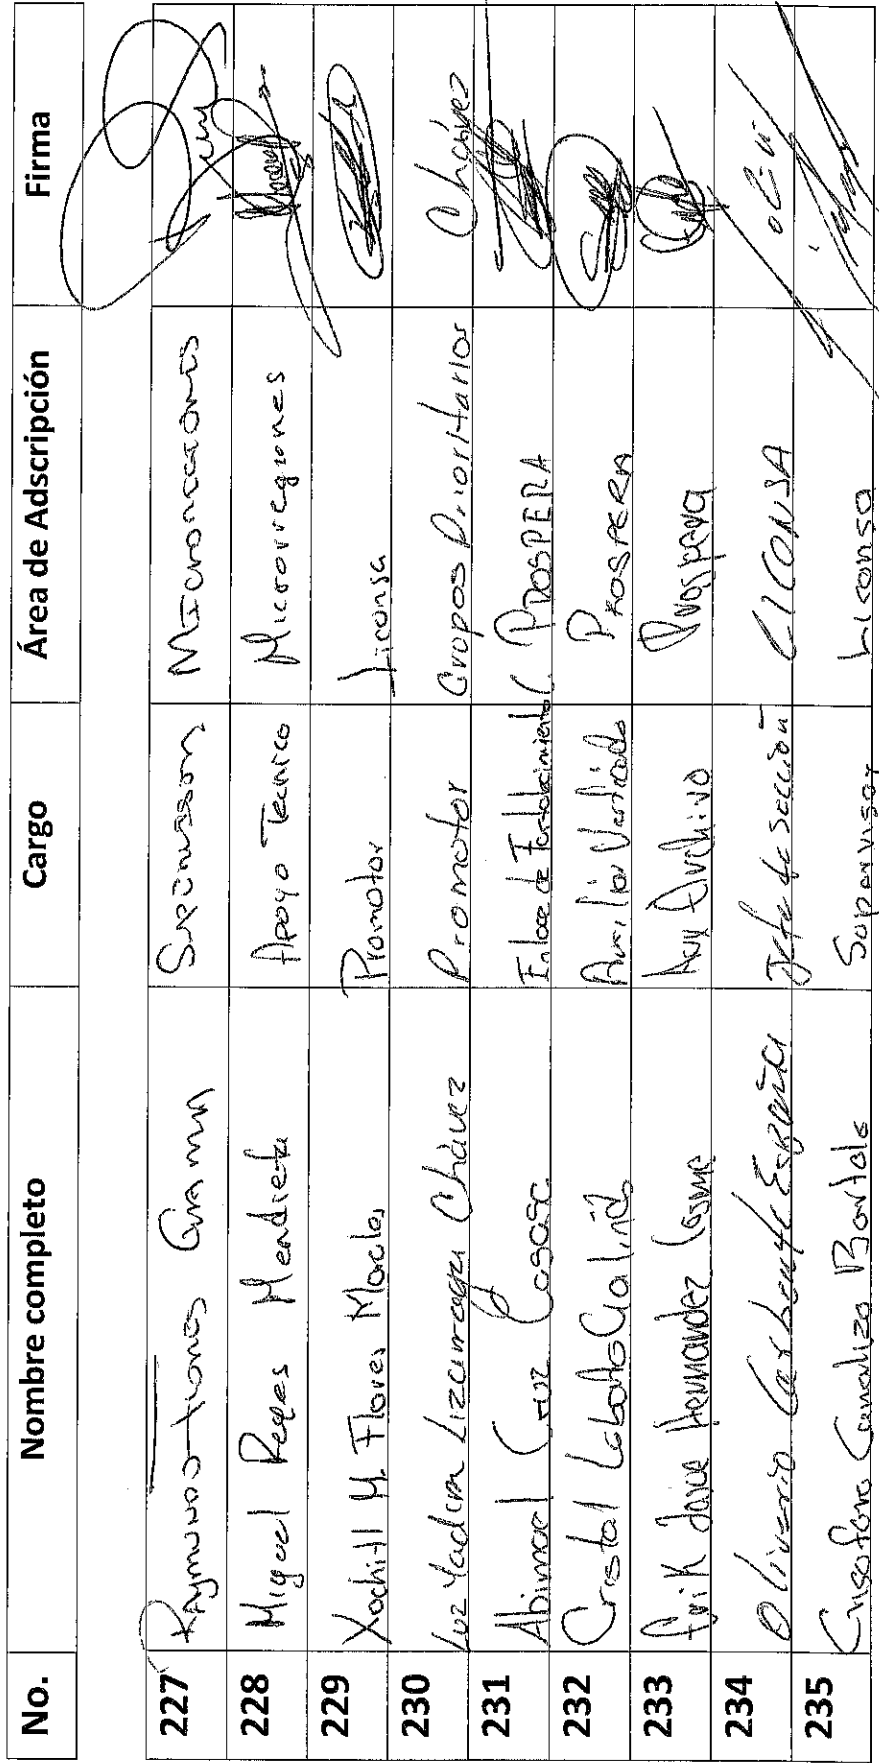 No. Nombre completo Cargo Área de Adscripción Firma
227 Raymundo Flores Supervisor Microrregiones
228 Miguel Reyes Mendieta Apoyo Tecnico Microrregiones
229 Xochitl M. Flores Morales Promotor Liconsa
230 Luz Yadira Lizarraga Chávez Promotor Grupos Prioritarios Chávez
231 Abimael Cruz Enlace de Fortalecimiento C. PROSPERA
232 Cristal Lobato Galindo PROSPERA
233 Erik Jorge Hernandez Cosme Aux Archivo Prospera
234 Oliverio España Jefe de sección LICONSA
235 Canalizo Supervisor Liconsa